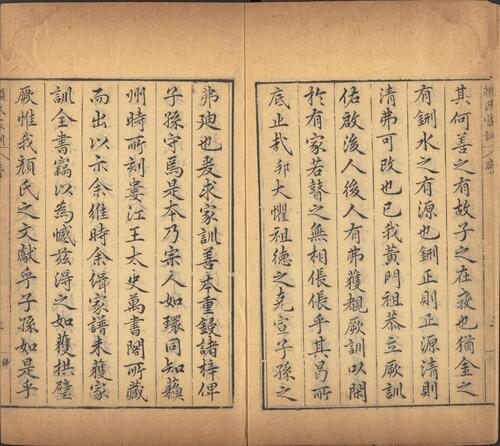 其何善之有故子之在夜也猶金之
有鉶水之有源也鉶正則正源清則
清弗可改也已我黃門祖恭立厥訓
佑啟後人後人有弗獲覩厥訓以閑
於有家若瞽之無相倀倀乎其曷所
底止哉邦大懼祖德之克宣子孫之
弗迪也爰求家訓善本重鋟諸梓俾
子孫守焉是本乃宗人如環同知蘇
州時所刻婁江王太史萬書閣所藏
而出以示余維時余緝家譜未獲家
訓全書竊以為憾茲得之如獲拱璧
厥惟我顏氏之文獻乎子孫如是乎